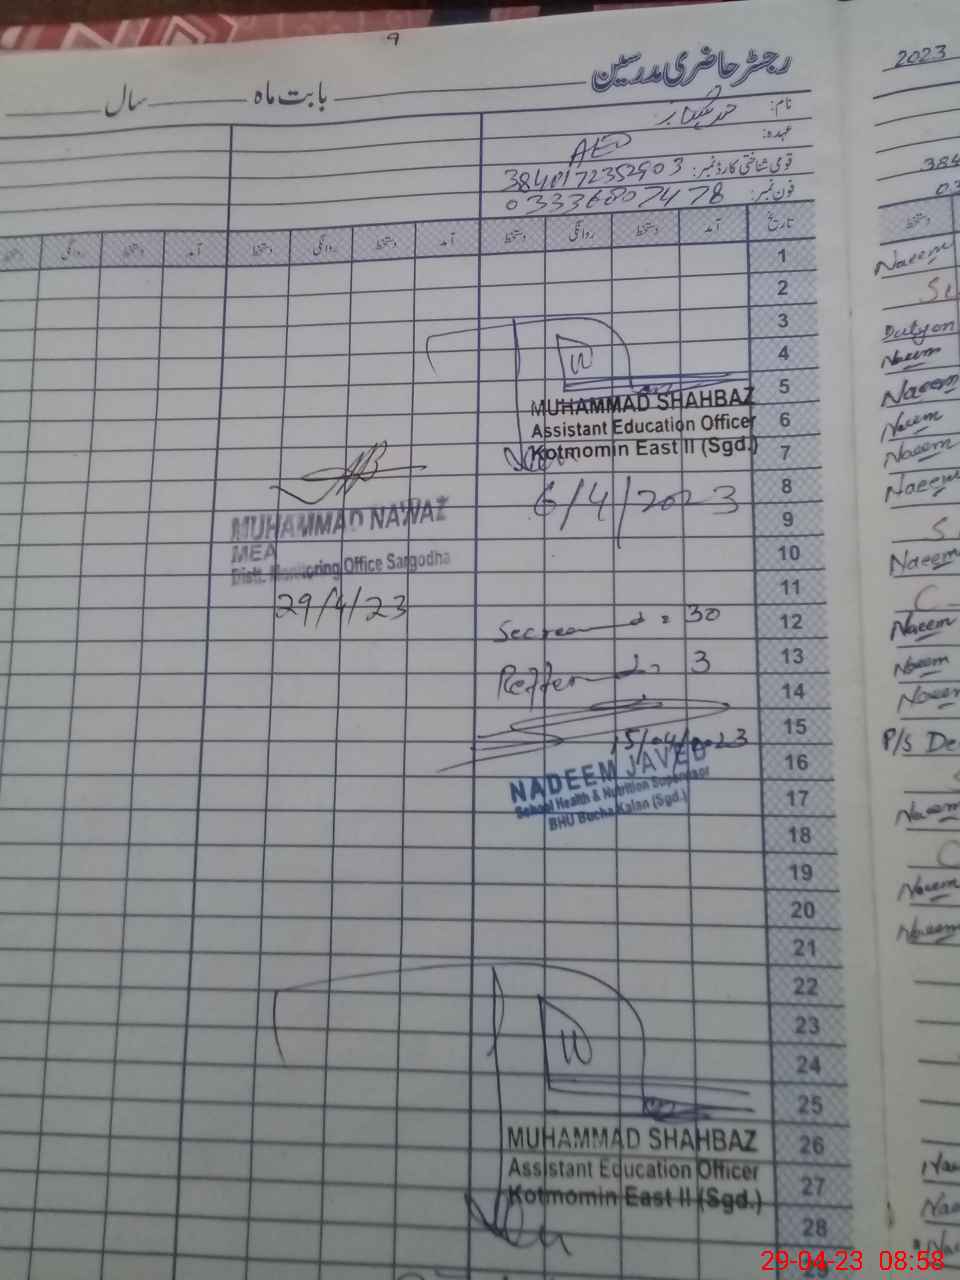 9
رجسٹر حاضری مدرسین
بابت ماہ سال
نام:
عہدہ: AEO
قومی شناختی کارڈ نمبر: 3840172352903
فون نمبر: 03336807478
تاریخ آمد دستخط روانگی دستخط آمد دستخط روانگی دستخط
1
2
3
4
5
MUHAMMAD SHAHBAZ
6
Assistant Education Officer
7
Kotmomin East II (Sgd.)
8
6/4/2023
9
MUHAMMAD NAWAZ
MEA
10
Distt. Monitoring Office Sargodha
11
29/4/23
12
: 30
13
3
14
15
15/04/2023
16
NADEEM JAVED
17
School Health & Nutrition Supervisor
BHU Bucha Kalan (Sgd.)
18
19
20
21
22
23
24
25
26
MUHAMMAD SHAHBAZ
Assistant Education Officer
27
Kotmomin East II (Sgd.)
28
29
2023
دستخط
Naeem
Naeem
Naeem
Naeem
Naeem
Naeem
Naeem
Naeem
Naeem
Naeem
P/S De
Naeem
Naeem
Naeem
29-04-23 08:58